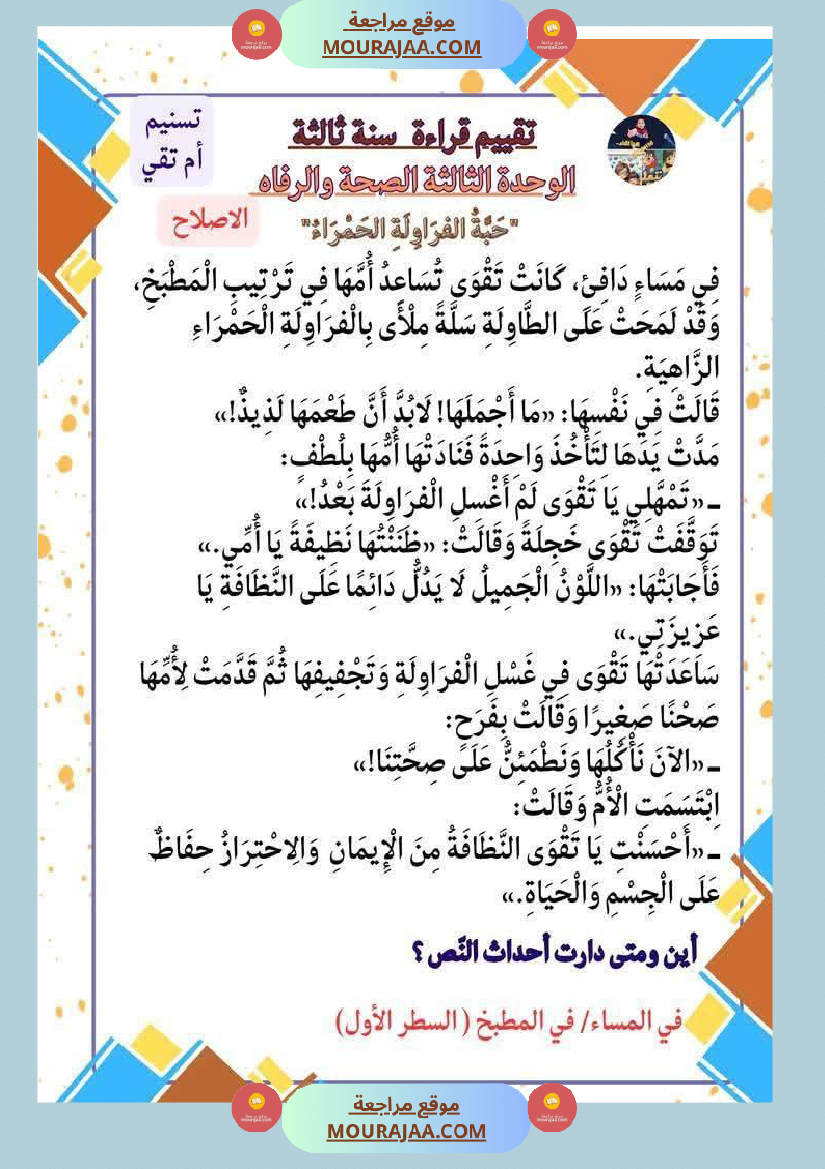 موقع مراجعة
MOURAJAA.COM
تسنيم
أم تقي
تقييم قراءة سنة ثالثة
الوحدة الثالثة الصحة والرفاه
الاصلاح
"حَبَّةُ الفرَاوِلَةِ الحَمْرَاءُ"
فِي مَسَاءٍ دَافِئٍ، كَانَتْ تَقْوَى تُسَاعدُ أُمَّهَا فِي تَرْتِيبِ الْمَطْبَخِ،
وَقَدْ لَمَحَتْ عَلَى الطَّاوِلَةِ سَلَّةً مِلْأَى بِالْفرَاوِلَةِ الْحَمْرَاءِ
الزَّاهِيَةِ.
قَالَتْ فِي نَفْسِهَا: «مَا أَجْمَلَهَا! لَابُدَّ أَنَّ طَعْمَهَا لَذِيذٌ!»
مَدَّتْ يَدَهَا لِتَأْخُذَ وَاحِدَةً فَنَادَتْهَا أُمُّهَا بِلُطْفٍ:
ـ «تَمْهَّلِي يَا تَقْوَى لَمْ أَغْسِلِ الْفرَاوِلَةَ بَعْدُ!»
تَوَقَّفَتْ تَقْوَى خَجِلَةً وَقَالَتْ: «ظَنَنْتُهَا نَظِيفَةً يَا أُمِّي.»
فَأَجَابَتْهَا: «اللَّوْنُ الْجَمِيلُ لَا يَدُلُّ دَائِمًا عَلَى النَّظَافَةِ يَا
عَزِيزَتِي.»
سَاعَدَتْهَا تَقْوَى فِي غَسْلِ الْفرَاوِلَةِ وَتَجْفِيفِهَا ثُمَّ قَدَّمَتْ لِأُمِّهَا
صَحْنًا صَغِيرًا وَقَالَتْ بِفَرَحٍ:
ـ «الآنَ نَأْكُلُهَا وَنَطْمَئِنُّ عَلَى صِحَّتِنَا!»
اِبْتَسَمَتِ الْأُمُّ وَقَالَتْ:
ـ «أَحْسَنْتِ يَا تَقْوَى النَّظَافَةُ مِنَ الْإِيمَانِ وَالِاحْتِرَازُ حِفَاظٌ
عَلَى الْجِسْمِ وَالْحَيَاةِ.»
أين ومتى دارت أحداث النّص ؟
في المساء/ في المطبخ ( السطر الأول)
موقع مراجعة
MOURAJAA.COM